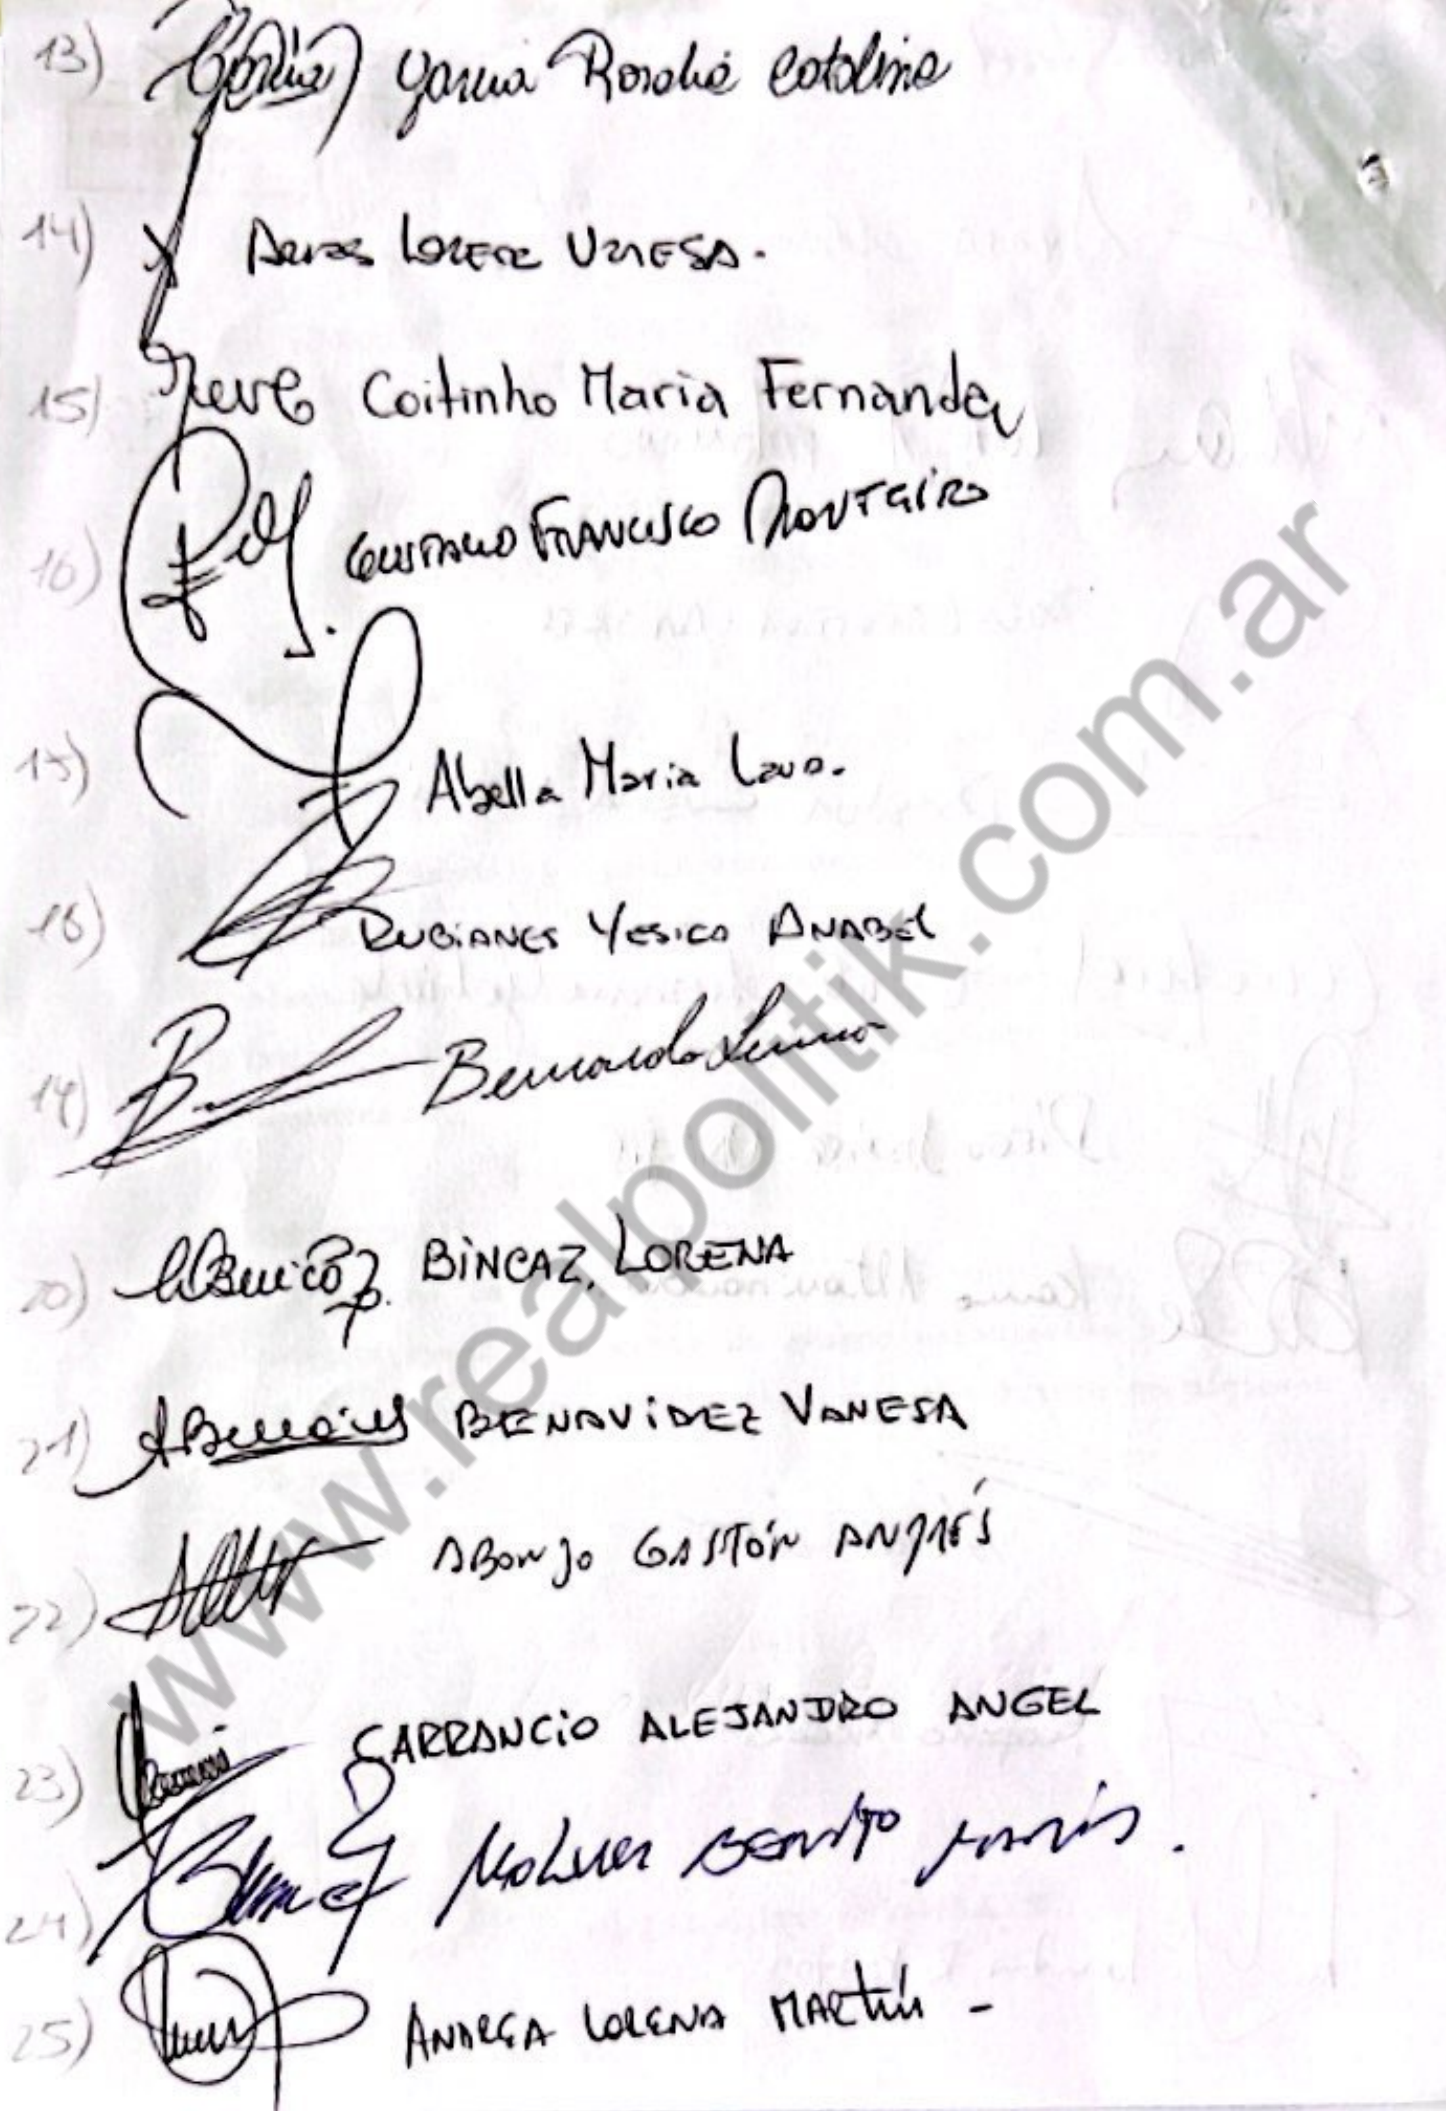 13) Garcia Rosalia Catalina
14) Lorena Vanesa.
15) Coitinho Maria Fernanda
16) Gustavo Francisco Monteiro
17) Abella Maria Laura.
18) RUBIANES YESICA ANABEL
19) Bernarda
20) BINCAZ, LORENA
21) BENAVIDEZ VANESA
22) GASTÓN ANDRÉS
23) CARRANCIO ALEJANDRO ANGEL
24) BENITO
25) ANDREA LORENA MARTIN -
www.realpolitik.com.ar